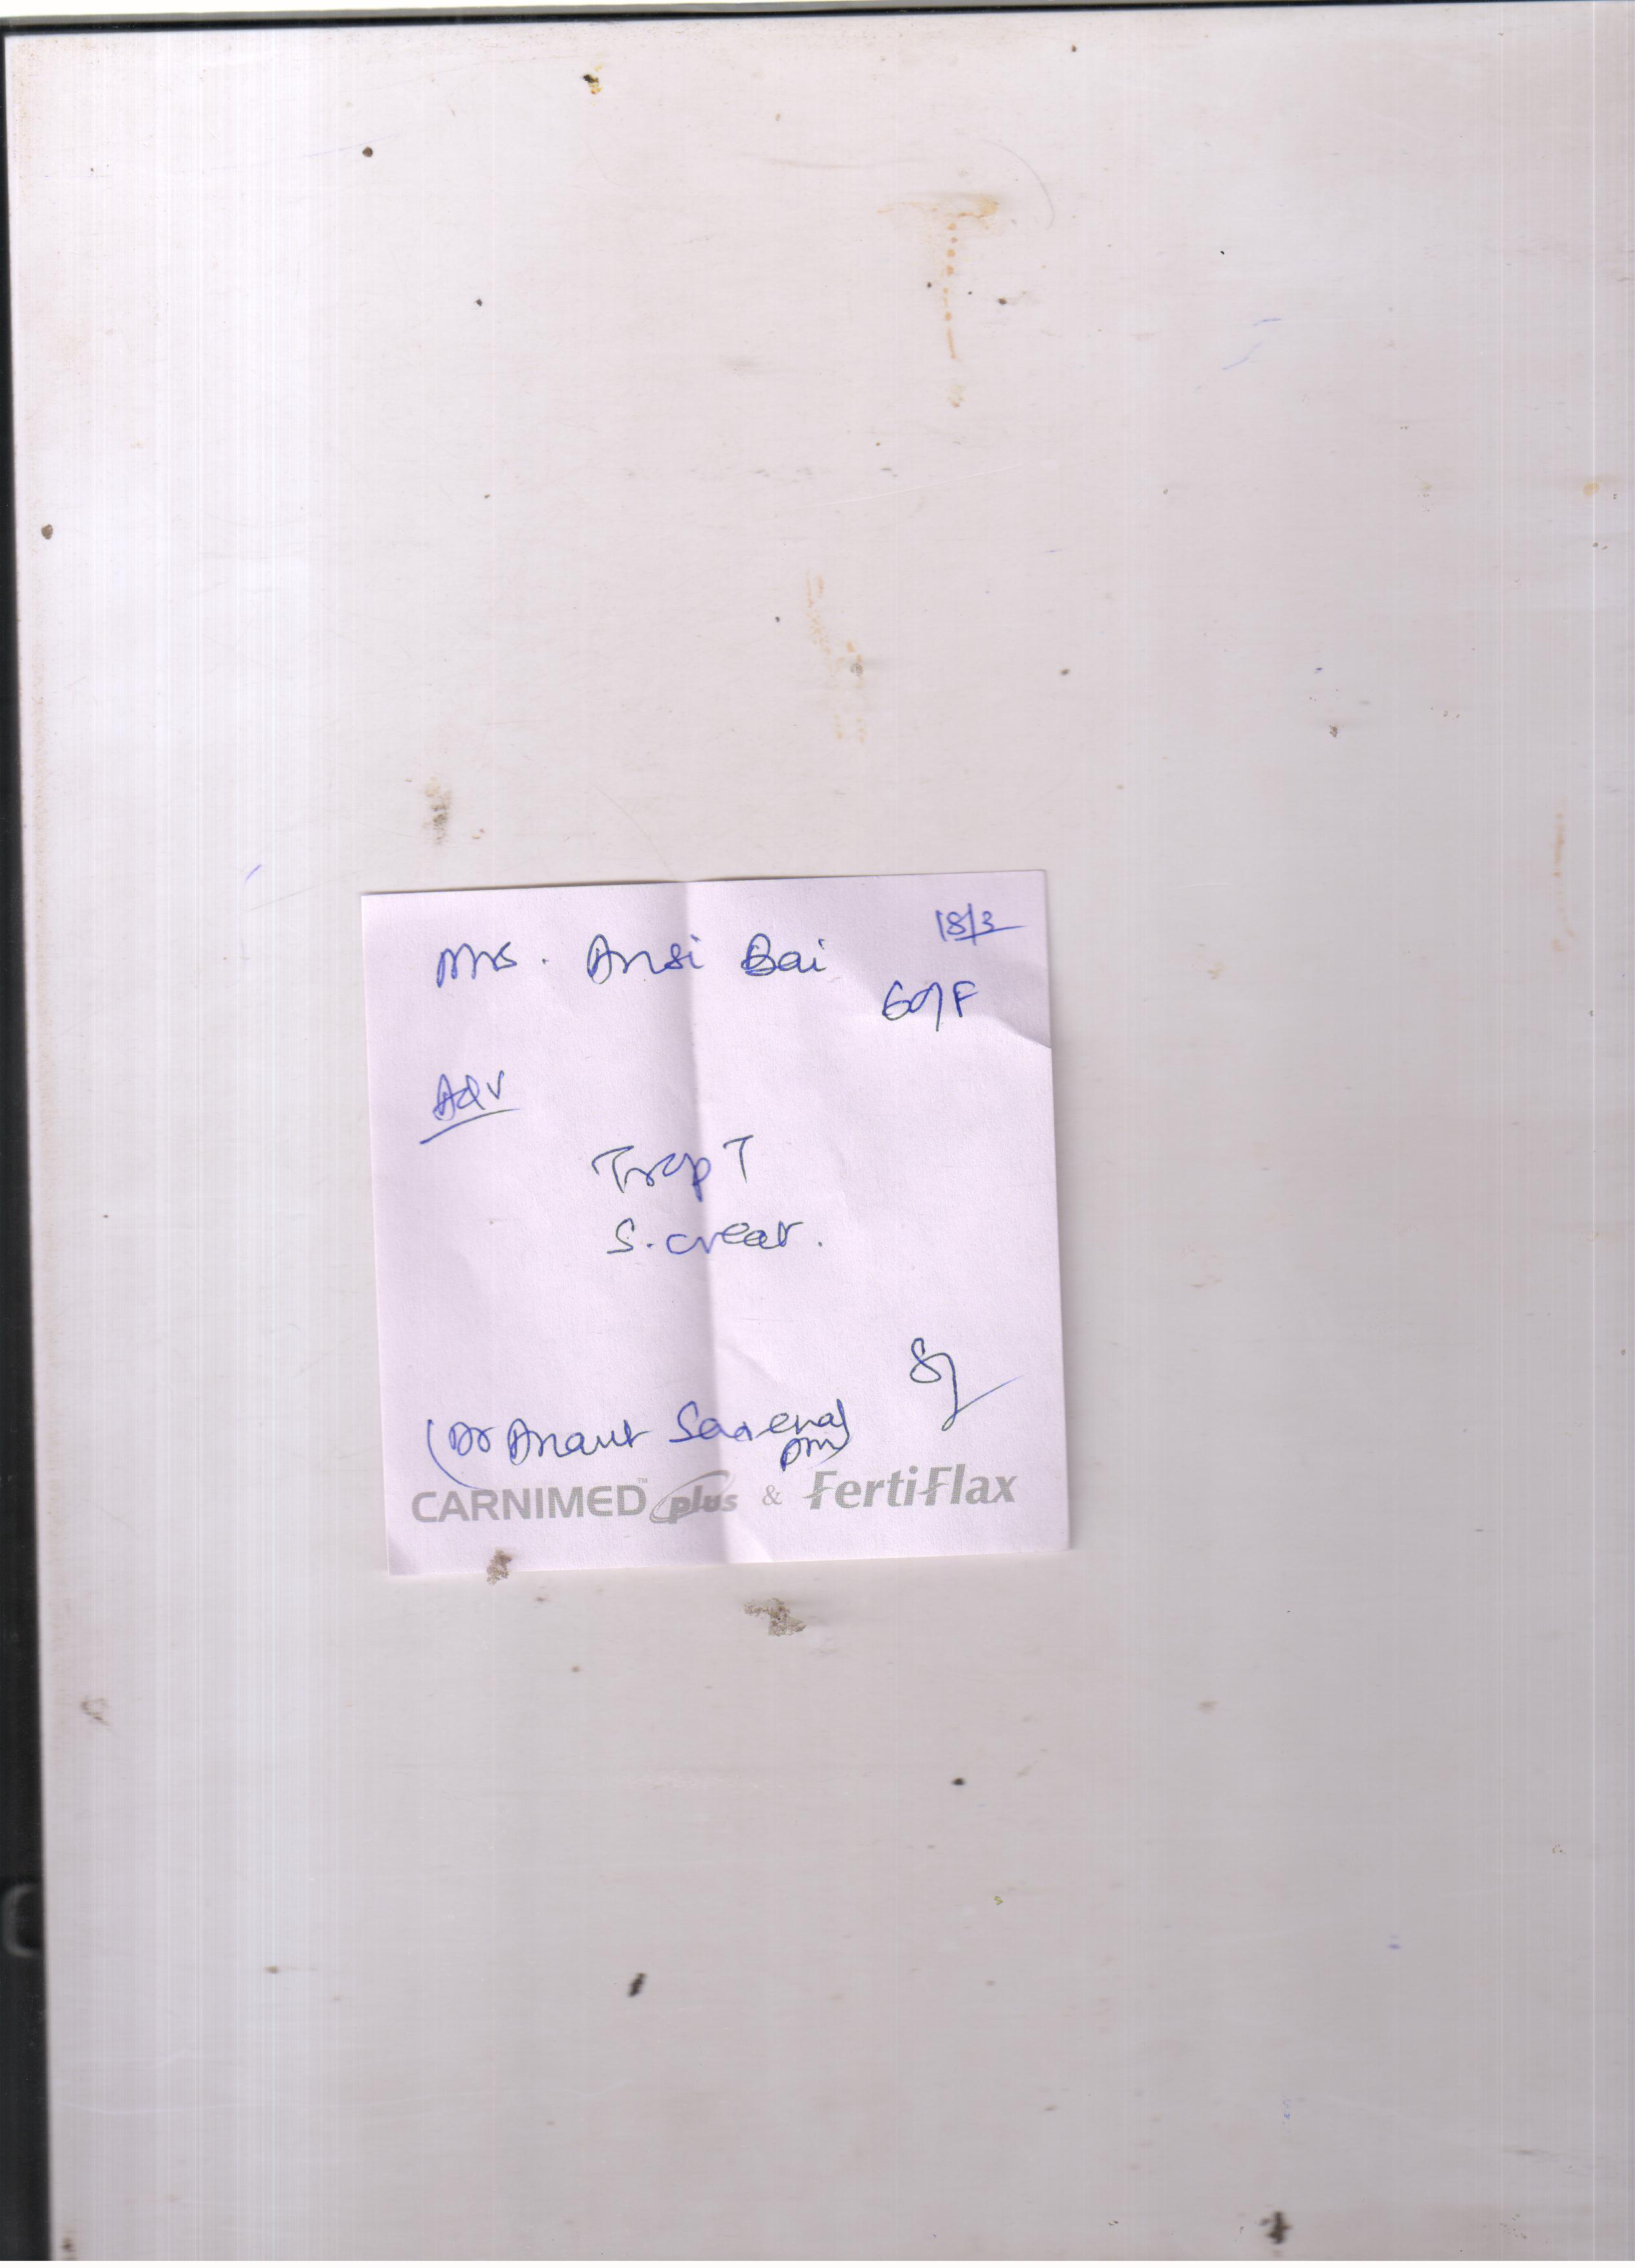 18/3
Mrs. Ansi Bai
60/F
Adv
Trop T
S. creat.
(Dr Anant Saxena)
CARNIMED™ plus & FertiFlax